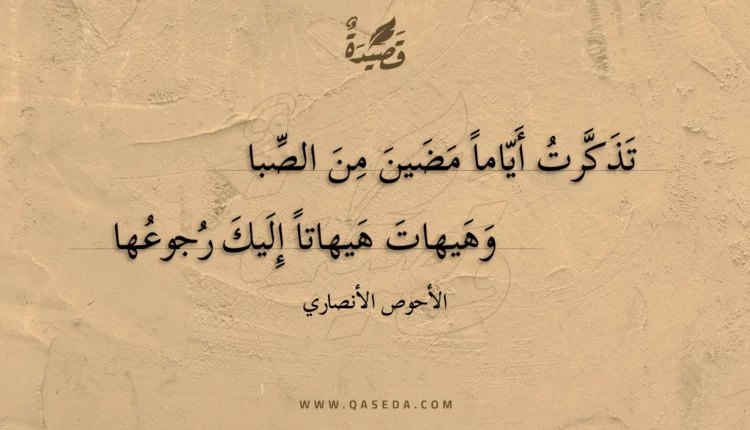 قَصِيدَةٌ
تَذَكَّرتُ أَيّاماً مَضَينَ مِنَ الصِّبا
وَهَيهاتَ هَيهاتاً إِلَيكَ رُجوعُها
الأحوص الأنصاري
WWW.QASEDA.COM